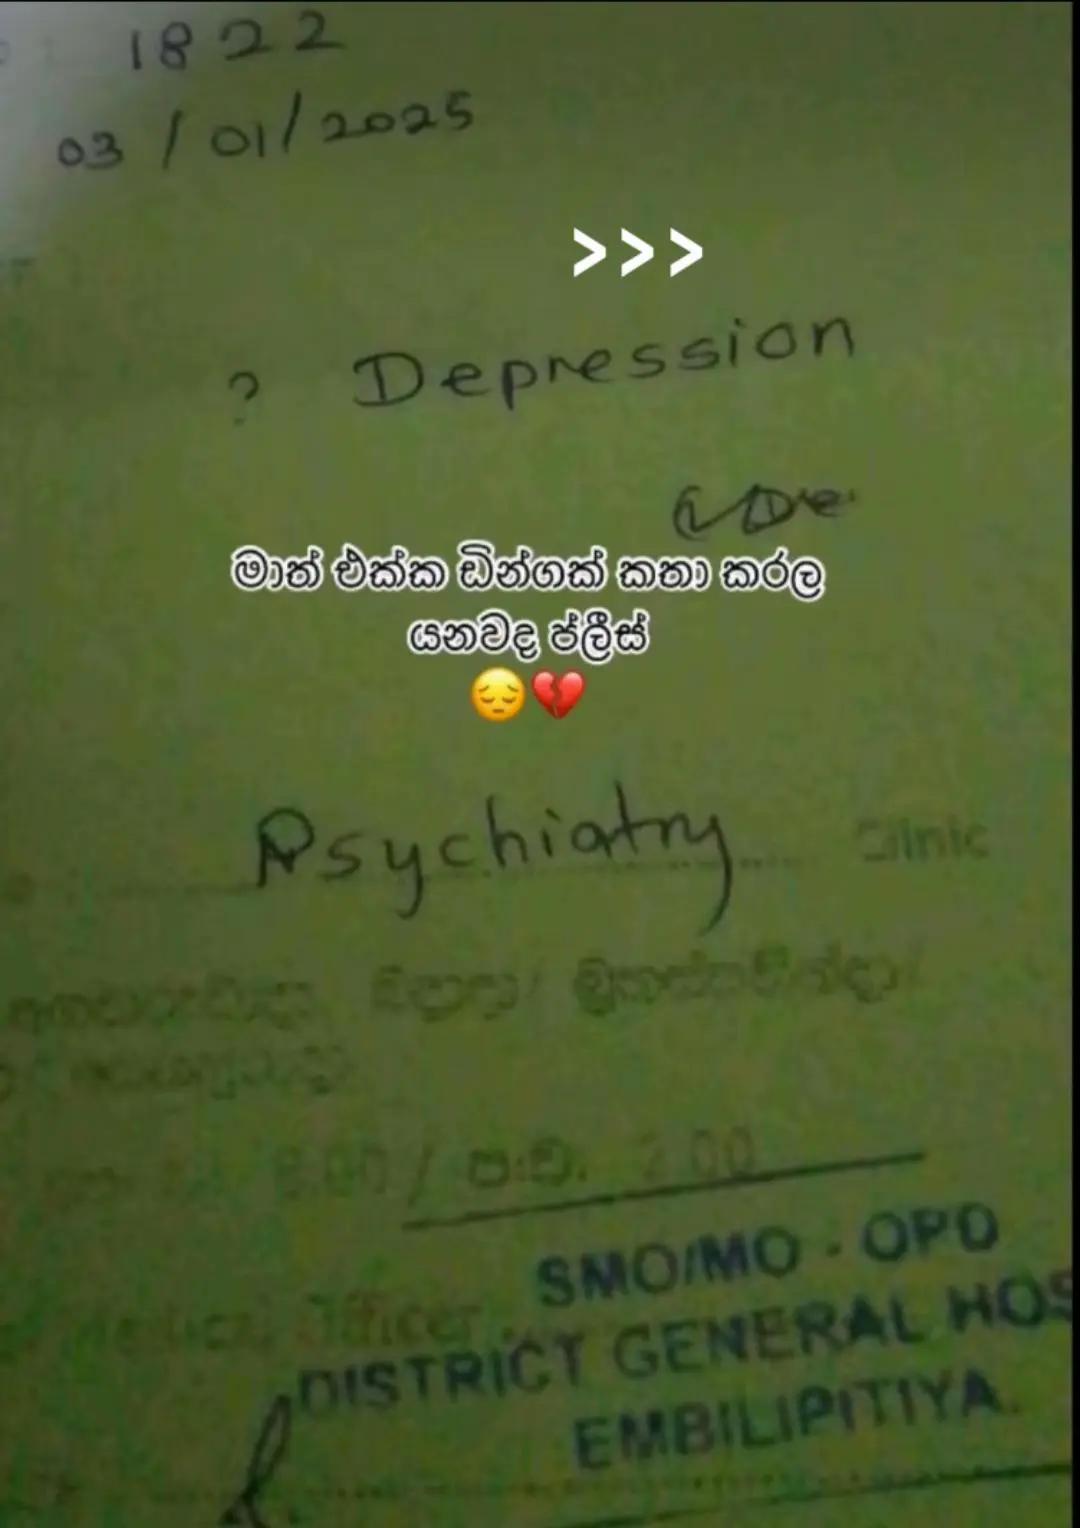 1822
03/01/2025
>>>
? Depression
මාත් එක්ක ඩින්ගක් කතා කරල
යනවද ප්ලීස්
😔💔
Psychiatry Clinic
8.00 / ප.ව. 2.00
SMO/MO - OPD
Medical Officer
DISTRICT GENERAL HOS
EMBILIPITIYA.